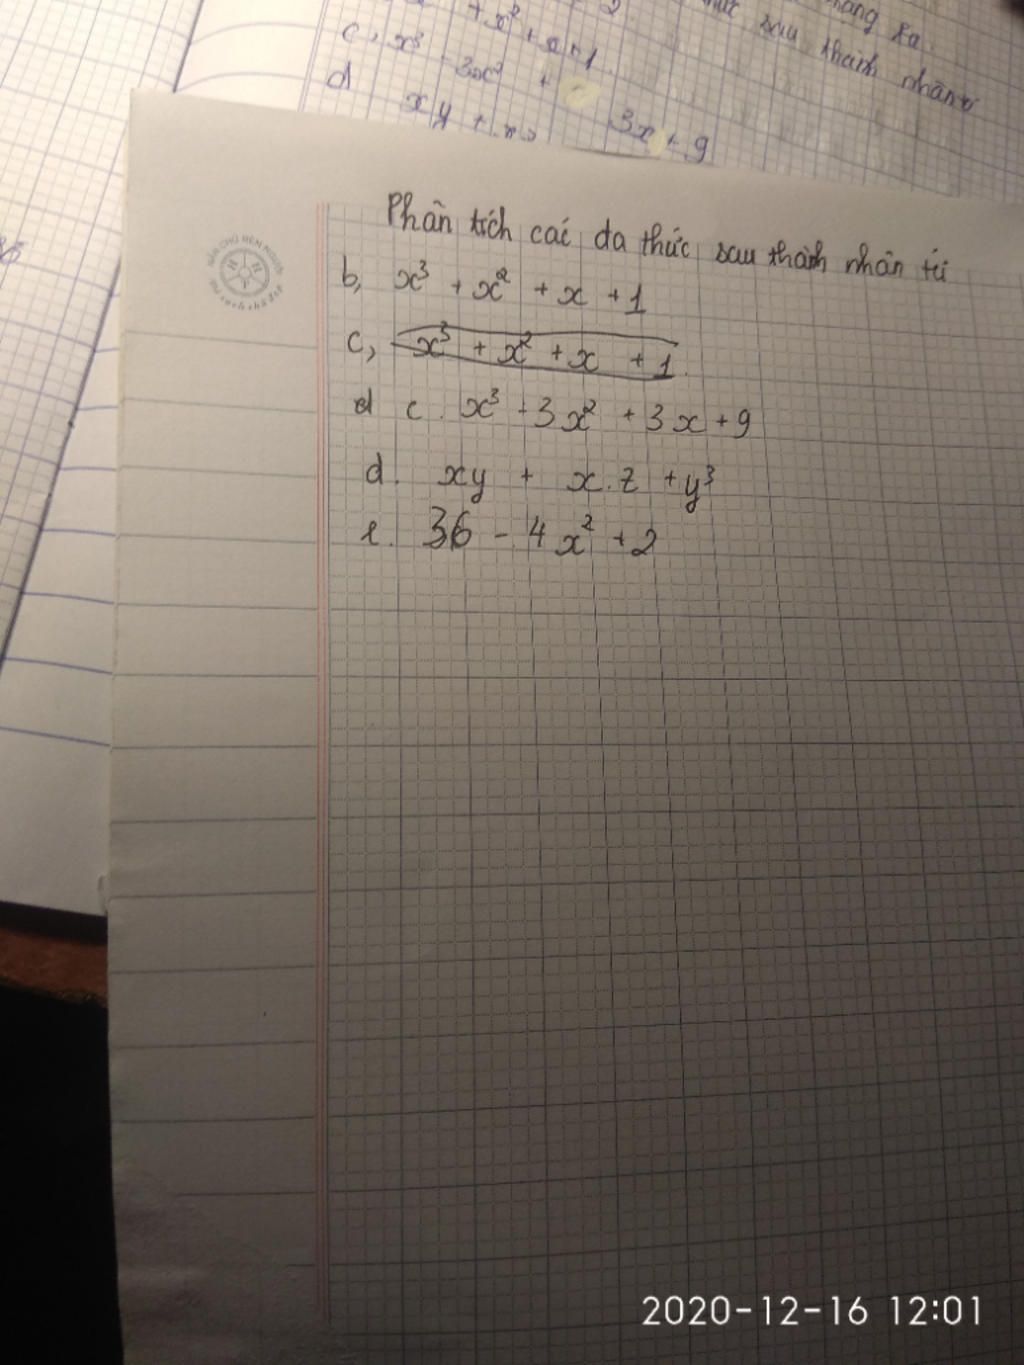 + x² + x + 1
sau thành nhân
c, x³ - 3x² + 3x + 9
d xy +
Phân tích các đa thức sau thành nhân tử
b, x³ + x² + x + 1
c, x³ + x² + x + 1
d c. x³ - 3x² + 3x + 9
d. xy + x.z + y³
e. 36 - 4x² + 2
2020-12-16 12:01